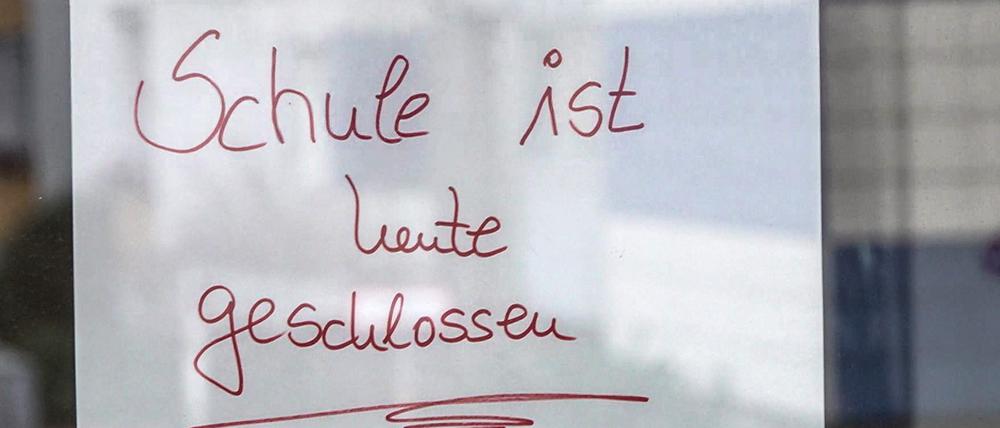 Schule ist
heute
geschlossen